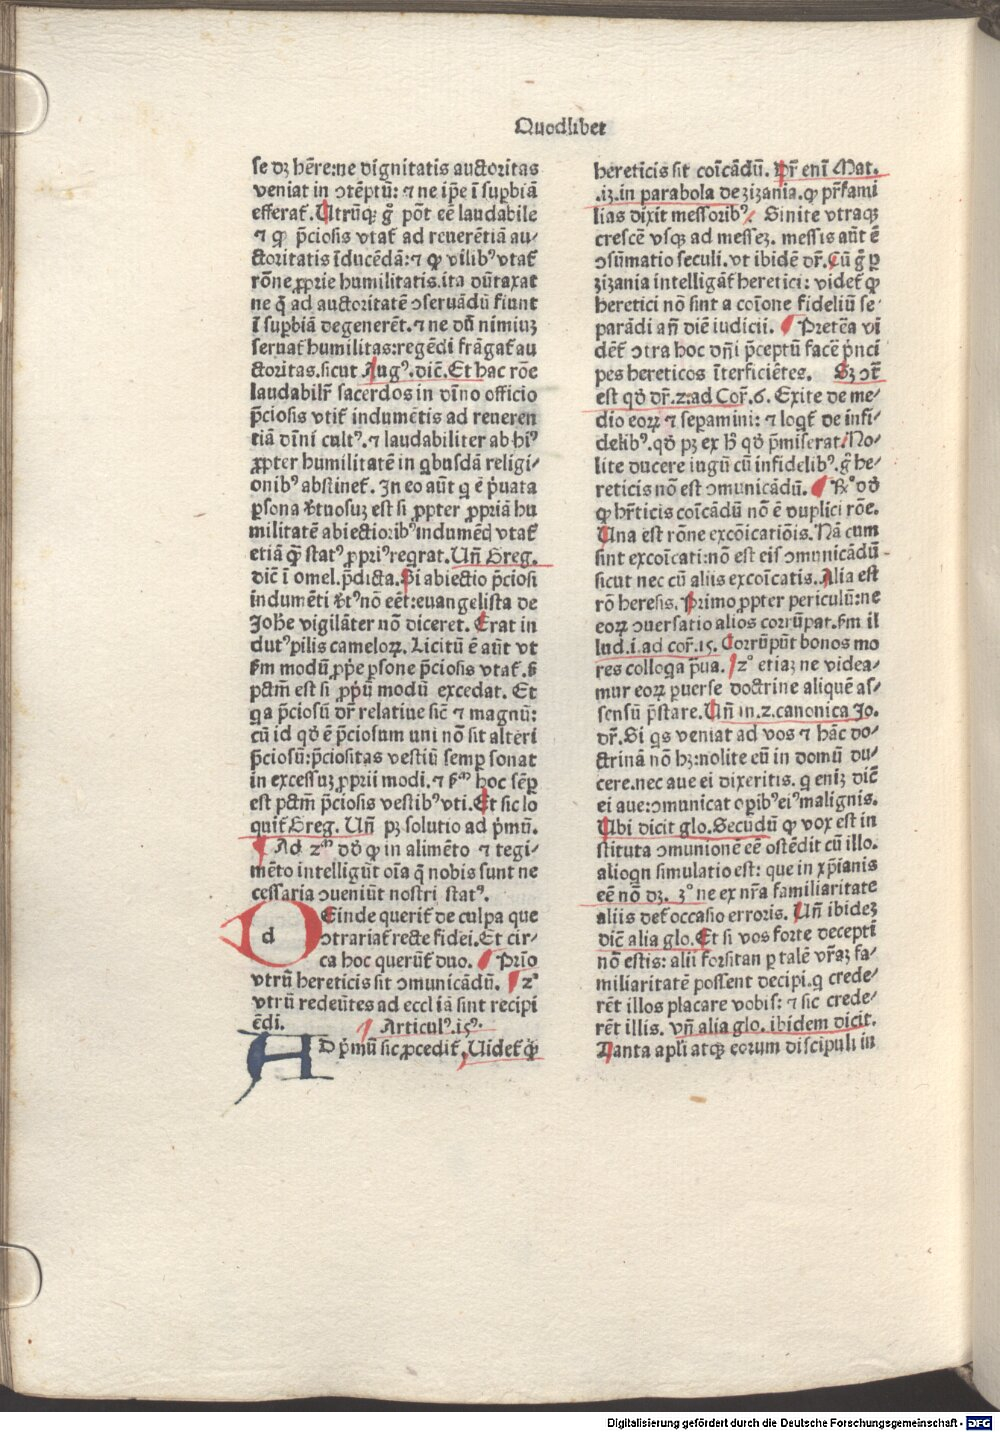 Quodlibet
se dꝫ hēre:ne dignitatis auctoritas
veniat in ↄtēptū: ⁊ ne ip̄e ī suꝑbiā
efferat᷑. Utrūqꝫ gͦ pōt eē laudabile
⁊ ꝙ p̄ciosis vtat᷑ ad reuerētiā au⸗
ctoritatis īducēdā:⁊ ꝙ vilibꝰ vtat᷑
rōne ꝓprie humilitatis.ita dūtaxat
ne q̄ ad auctoritatē ↄseruādū fiunt
ī suꝑbiā degenerēt.⁊ ne dū nimiuꝫ
seruat᷑ humilitas:regēdi frāgat᷑ au
ctoritas.sicut Augꝰ.dič.Et hac rōe
laudabilr̄ sacerdos in dīno officio
p̄ciosis vtit᷑ indumētis ad reueren
tiā dīni cultꝰ.⁊ laudabiliter ab hīꝰ
ꝓpter humilitatē in qbusdā religi⸗
onibꝰ abstinet᷑. In eo aūt q ē p̓uata
ꝑsona v̓tuosuꝫ est si ꝓpter ꝓpriā hu
militatē abiectioribꝰ indumētꝭ vtat᷑
etiā q̄ꝫ statꝰ ꝓpriꝰ reqrat. Un̄ Greg.
dič ī omel.p̄dicta. Si abiectio p̄ciosi
indumēti v̓tꝰ nō eēt:euangelista de
Johē vigilāter nō diceret. Erat in
dutꝰ pilis cameloꝝ. Licitū ē aūt vt
ẜm modū ꝓp̄e ꝑsone p̄ciosis vtat᷑. ß
pctm̄ est si ꝓp̓ū modū excedat. Et
qa p̄ciosū dr̄ relatiue sič ⁊ magnū:
cū id qd̓ ē p̄ciosum uni nō sit alteri
p̄ciosū:p̄ciositas vestiū semꝑ sonat
in excessuꝫ ꝓprii modi.⁊ ẜm hoc sēꝑ
est pctm̄ p̄ciosis vestibꝰ vti. Et sic lo
quit᷑ Greg. Un̄ pꝫ solutio ad p̓mū.
Ad 2ᵐ dd̓ ꝙ in alimēto ⁊ tegi⸗
mēto intelligūt oīa q̄ nobis sunt ne
cessaria ↄueniūt nostri statꝰ.
d Einde querit᷑ de culpa que
ↄtrariat᷑ recte fidei.Et cir⸗
ca hoc querūt᷑ duo. Prīo
vtrū hereticis sit ↄmunicādū. 2ͦ
vtrū redeūtes ad eccl̄iā sint recipi
ēdi. Articulꝰ.15ꝰ.
AD p̓mū sic ꝓcedit᷑. Uidet᷑ qͥ
hereticis sit coīcādū. Pr̄ enī Mat.
.13.in parabola de zizania.ꝙ pr̄fami
lias dixit messoribꝰ. Sinite vtraqꝫ
crescē vsqꝫ ad messeꝫ. messis aūt ē
ↄsūmatio seculi.vt ibidē dr̄.Cū gͦ ꝑ
zizania intelligāt᷑ heretici: videt᷑ ꝙ
heretici nō sint a coīone fideliū se⸗
parādi an̄ diē iudicii. Pretēa vi
dēt᷑ ↄtra hoc dn̄i p̄ceptū facē p̓nci
pes hereticos īterficiētes. Sꝫ ↄr̄
est qd̓ dr̄.2.ad Cor̄.6. Exite de me⸗
dio eoꝝ ⁊ sepamini: ⁊ loqt᷑ de infi⸗
delibꝰ.qd̓ pꝫ ex h̓ qd̓ p̄miserat.No⸗
lite ducere ingū cū infidelibꝰ.gͦ he⸗
reticis nō est ↄmunicādū. Rͦ dd̓
ꝙ hr̄ticis coīcādū nō ē duplici rōe.
Una est rōne excōicatiōis. Nā cum
sint excoīcati:nō est eis ↄmunicādū
sicut nec cū aliis excoīcatis. Alia est
rō heresis. Primo ꝓpter periculū:ne
eoꝝ ↄuersatio alios corrūpat.ẜm il
lud.i.ad cor̄.15. Corrūpūt bonos mo
res colloqa p̄ua. 2ͦ etiaꝫ ne videa⸗
mur eoꝝ ꝑuerse doctrine aliquē as⸗
sensū p̄stare. Un̄ in.2.canonica Jo.
dr̄. Si qs veniat ad vos ⁊ hāc do⸗
ctrinā nō hꝫ:nolite eū in domū du⸗
cere.nec aue ei dixeritis. q eniꝫ dič
ei aue:ↄmunicat oꝑibꝰ eiꝰ malignis.
Ubi dicit glo.Secūdū ꝙ vox est in
stituta ↄmunionē eē ostēdit cū illo.
alioqn simulatio est: que in xp̄ianis
eē nō dꝫ. 3ͦ ne ex nr̄a familiaritate
aliis det᷑ occasio erroris. Un̄ ibideꝫ
dič alia glo. Et si vos forte decepti
nō estis: alii forsitan ꝑ talē vr̄aꝫ fa⸗
miliaritatē possent decipi.q crede⸗
rēt illos placare vobis: ⁊ sic crede⸗
rēt illis. vn̄ alia glo. ibidem dicit.
Tanta apl̓i atqꝫ eorum discipuli in
Digitalisierung gefördert durch die Deutsche Forschungsgemeinschaft - DFG